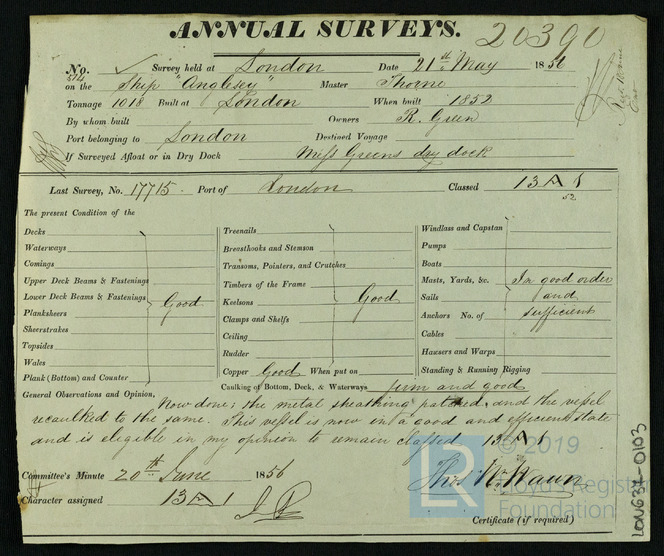 ANNUAL SURVEYS.
20390
No. 514 Survey held at London Date 21st May 1856
on the Ship "Anglesey" Master Thorne
Tonnage 1018 Built at London When built 1852
By whom built Owners R. Green
Port belonging to London Destined Voyage
If Surveyed Afloat or in Dry Dock Messrs Greens dry dock
Last Survey, No. 17715. Port of London Classed 13 A 1
52
The present Condition of the
Decks
Waterways
Comings
Upper Deck Beams & Fastenings
Lower Deck Beams & Fastenings Good
Planksheers
Sheerstrakes
Topsides
Wales
Plank (Bottom) and Counter
Treenails
Breasthooks and Stemson
Transoms, Pointers, and Crutches
Timbers of the Frame
Keelsons Good
Clamps and Shelfs
Ceiling
Rudder
Copper Good When put on
Windlass and Capstan
Pumps
Boats
Masts, Yards, &c. In good order
Sails and
Anchors No. of sufficient
Cables
Hawsers and Warps
Standing & Running Rigging
Caulking of Bottom, Deck, & Waterways firm and good
General Observations and Opinion, Now done; the metal sheathing patched, and the vessel
recaulked to the same. This vessel is now in a good and efficient state
and is eligible in my opinion to remain classed 13 A 1
Committee's Minute 20th June 1856
Character assigned 13 A 1
Certificate (if required)
© 2019
LR
Lloyd's Register
Foundation
LON634-0103